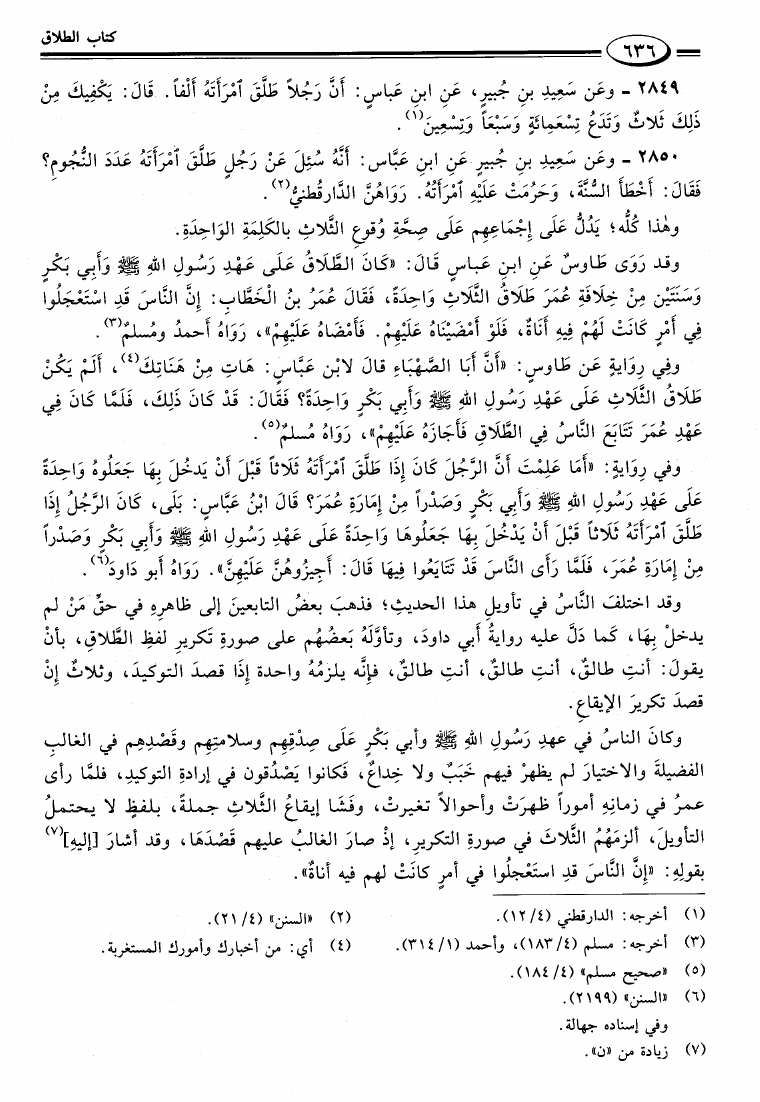 كتاب الطلاق
٦٣٦
٢٨٤٩ ـ وعَن سَعِيدِ بنِ جُبيرٍ، عَنِ ابنِ عَباسٍ: أَنَّ رَجُلاً طَلَّقَ ٱمْرَأَتَهُ أَلْفاً. قَالَ: يَكْفِيكَ مِنْ
ذَلِكَ ثَلاثٌ وَتَدَعُ تِسْعَمِائَةٍ وَسَبْعاً وَتِسْعِينَ(١).
٢٨٥٠ ـ وعَن سَعِيدِ بنِ جُبيرٍ عَنِ ابنِ عَبَّاس: أَنَّهُ سُئِلَ عَنْ رَجُلٍ طَلَّقَ ٱمْرَأَتَهُ عَدَدَ النُّجُومِ؟
فَقَالَ: أَخْطَأَ السُّنَّةَ، وَحَرُمَتْ عَلَيْهِ ٱمْرَأَتُهُ. رَوَاهُنَّ الدَّارقُطنيُّ(٢).
وهٰذا كلُّه؛ يَدُلُّ عَلَى إِجْمَاعِهِم عَلَى صِحَّةِ وُقوعِ الثَّلاثِ بالكَلِمَةِ الوَاحِدَةِ.
وقد رَوَى طَاوسٌ عَنِ ابنِ عَباسٍ قَالَ: «كَانَ الطَّلَاقُ عَلَى عَهْدِ رَسُولِ اللهِ ﷺ وَأَبِي بَكْرٍ
وَسَنَتَيْنِ مِنْ خِلَافَةِ عُمَرَ طَلَاقُ الثَّلَاثِ وَاحِدَةً، فَقَالَ عُمَرُ بنُ الْخَطَّابِ: إِنَّ النَّاسَ قَدِ اسْتَعْجَلُوا
فِي أَمْرٍ كَانَتْ لَهُمْ فِيهِ أَنَاةٌ، فَلَوْ أَمْضَيْنَاهُ عَلَيْهِمْ. فَأَمْضَاهُ عَلَيْهِمْ»، رَوَاهُ أَحمدُ ومُسلمٌ(٣).
وفِي رِوَايَةٍ عَن طاوسٍ: «أَنَّ أَبَا الصَّهْبَاءِ قالَ لابْنِ عَبَّاسٍ: هَاتِ مِنْ هَنَاتِكَ(٤)، أَلَمْ يَكُنْ
طَلَاقُ الثَّلَاثِ عَلَى عَهْدِ رَسُولِ اللهِ ﷺ وَأَبِي بَكْرٍ وَاحِدَةً؟ فَقَالَ: قَدْ كَانَ ذَلِكَ، فَلَمَّا كَانَ فِي
عَهْدِ عُمَرَ تَتَابَعَ النَّاسُ فِي الطَّلَاقِ فَأَجَازَهُ عَلَيْهِمْ»، رَوَاهُ مُسلمٌ(٥).
وفي رِوَايَةٍ: «أَمَا عَلِمْتَ أَنَّ الرَّجُلَ كَانَ إِذَا طَلَّقَ ٱمْرَأَتَهُ ثَلَاثاً قَبْلَ أَنْ يَدخُلَ بِهَا جَعَلُوهُ وَاحِدَةً
عَلَى عَهْدِ رَسُولِ اللهِ ﷺ وَأَبِي بَكْرٍ وَصَدْراً مِنْ إِمَارَةِ عُمَرَ؟ قَالَ ابْنُ عَبَّاسٍ: بَلَى، كَانَ الرَّجُلُ إِذَا
طَلَّقَ ٱمْرَأَتَهُ ثَلَاثاً قَبْلَ أَنْ يَدْخُلَ بِهَا جَعَلُوهَا وَاحِدَةً عَلَى عَهْدِ رَسُولِ اللهِ ﷺ وَأَبي بَكْرٍ وَصَدْراً
مِنْ إِمَارَةِ عُمَرَ، فَلَمَّا رَأَى النَّاسَ قَدْ تَتَايَعُوا فِيهَا قَالَ: أَجِيزُوهُنَّ عَلَيْهِنَّ». رَوَاهُ أَبو دَاودَ(٦).
وقد اختلفَ النَّاسُ في تأويلِ هذا الحديثِ؛ فذهبَ بعضُ التابعينَ إلى ظاهرِهِ في حقِّ مَنْ لم
يدخلْ بِهَا، كَما دَلَّ عليه روايةُ أبي داودَ، وتأوَّلَهُ بَعضُهُم على صورةِ تَكريرِ لفظِ الطَّلاقِ، بأنْ
يقولَ: أنتِ طالقٌ، أنتِ طالقٌ، أنتِ طالقٌ، فإنَّه يلزمُهُ واحدة إذَا قصدَ التوكيدَ، وثلاثٌ إنْ
قصدَ تكريرَ الإيقاعِ.
وكانَ الناسُ في عهدِ رَسُولِ اللهِ ﷺ وأبي بكْرٍ عَلَى صِدْقِهِم وسلامتِهِم وقَصْدِهِم في الغالبِ
الفضيلةَ والاختيارَ لم يظهرْ فيهم خَبَبٌ ولا خِداعٌ، فَكانوا يَصْدُقون في إرادةِ التوكيدِ، فلمَّا رأى
عمرُ في زمانِهِ أموراً ظهرَتْ وأحوالاً تغيرتْ، وفَشَا إيقاعُ الثَّلاثِ جملةً، بلفظٍ لا يحتملُ
التأويلَ، ألزمَهُمُ الثَّلاثَ في صورةِ التكريرِ، إذْ صارَ الغالبُ عليهم قَصْدَهَا، وقد أشارَ [إليهِ](٧)
بقولِهِ: «إنَّ النَّاسَ قدِ استَعجلُوا في أمرٍ كانَتْ لهم فيه أناةٌ».
(١) أخرجه: الدارقطني (١٢/٤).
(٢) «السنن» (٢١/٤).
(٣) أخرجه: مسلم (١٨٣/٤)، وأحمد (٣١٤/١).
(٤) أي: من أخبارك وأمورك المستغربة.
(٥) «صحيح مسلم» (١٨٤/٤).
(٦) «السنن» (٢١٩٩).
وفي إسناده جهالة.
(٧) زيادة من «ن».